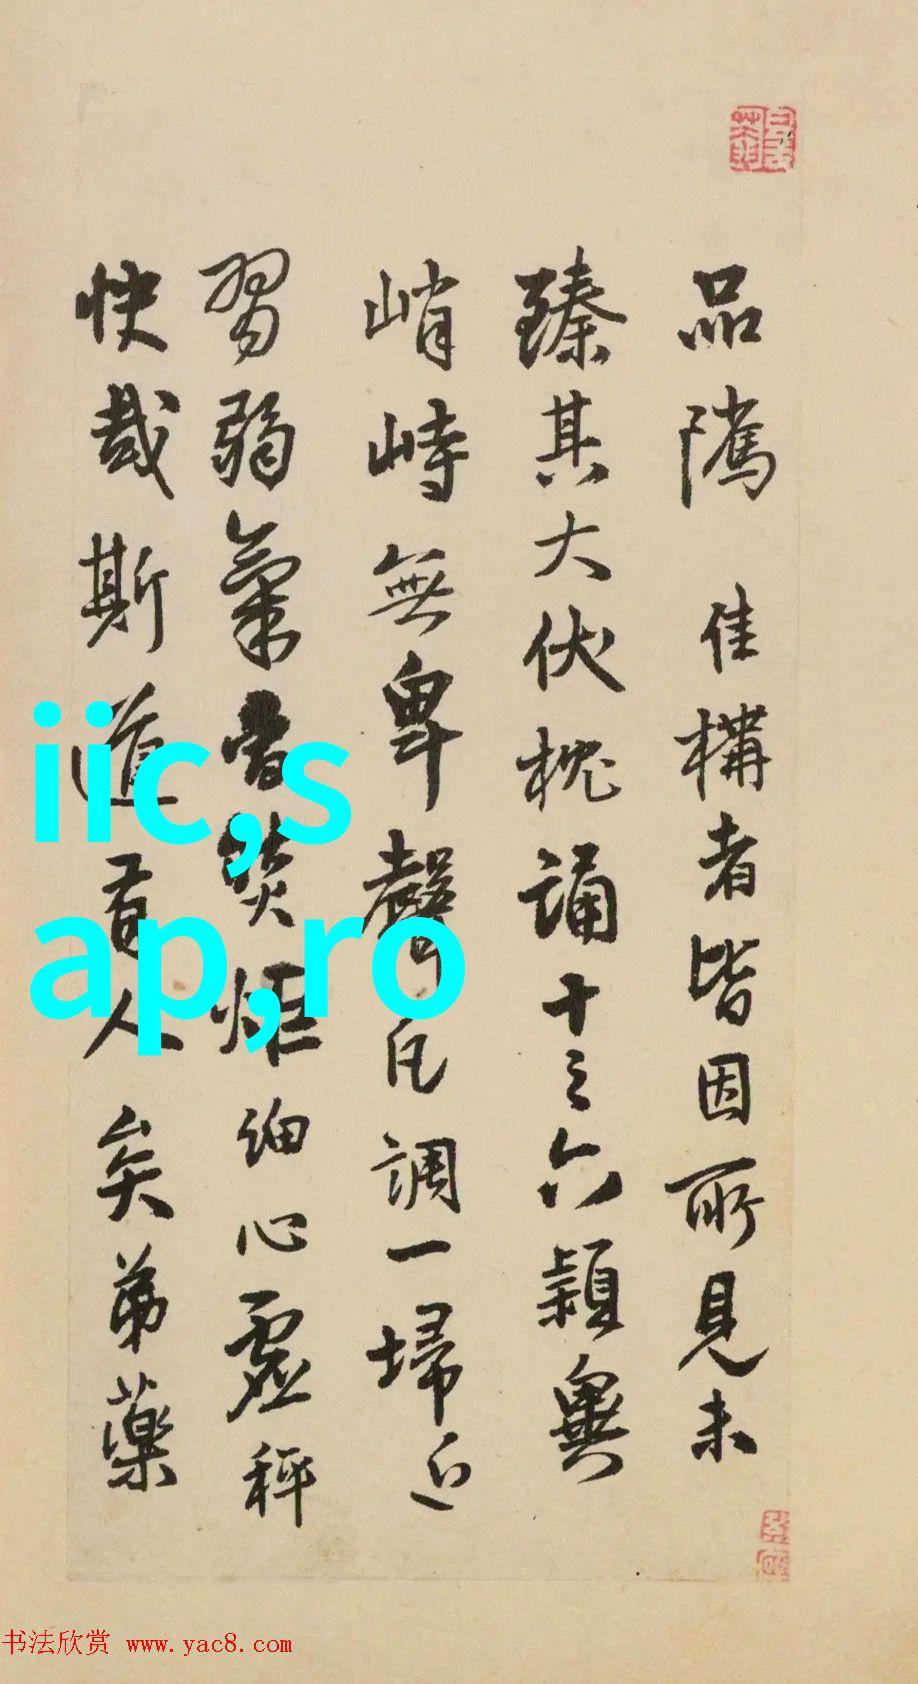 品隲佳構者皆因所見未
臻其大伏枕誦十三六穎異
峭峙無卑聲凡調一埽近
習弱氣
焚炬細心虛秤
快哉斯道
人矣弟藥
iic,s
ap,ro
书法欣赏 www.yac8.com